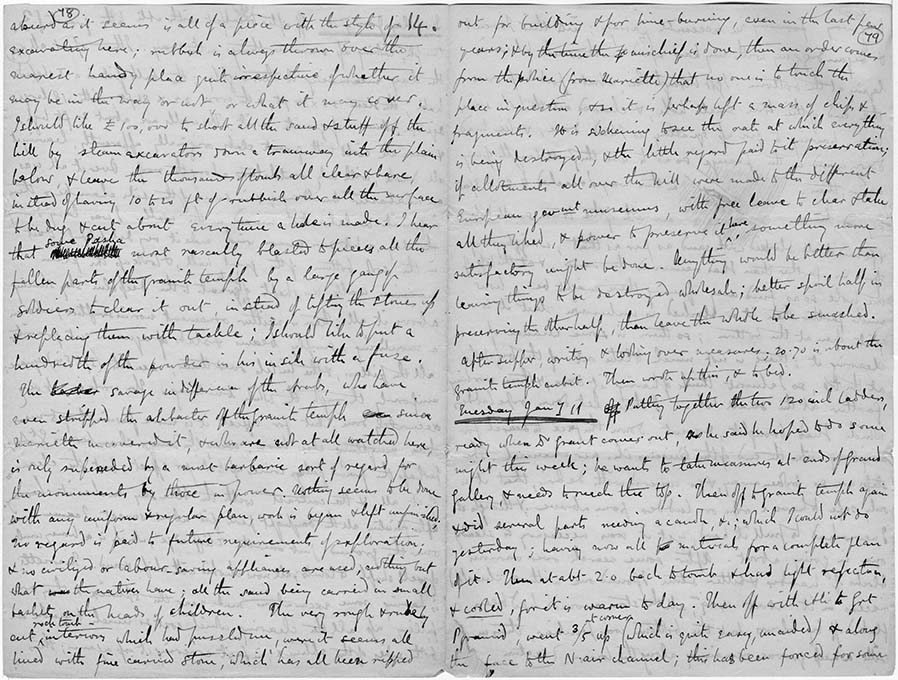 78)
absurd as it seems is all of a piece with the style of
excavating here; rubbish is always thrown over the
nearest handy place quite irrespective of whether it
may be in the way or not or what it may cover.
I should like £100,000 to shoot all the sand & stuff off the
hill by steam excavators down a tramway into the plain
below, & leave the thousands of tombs all clear & bare,
instead of having 10 to 20 ft of rubbish over all the surface
to be dug & cut about everytime a hole is made. I hear
that some Pasha most rascally blasted to pieces all the
fallen parts of the granite temple by a large gang of
soldiers to clear it out instead of lifting the stones up
& replacing them with tackle; I should like to put a
hundredth of the powder in his inside with a fuse.
The savage indifference of the Arabs, who have
even stripped the alabaster off the granite temple since
Mariette uncovered it, & who are not at all watched here,
is only superseded by a most barbaric sort of regard for
the monuments by those in power. Nothing seems to be done
with any uniform & regular plan, work is begun & left unfinished;
no regard is paid to future requirements of exploration,
& no civilized or labour saving appliances are used, nothing but
what the natives have; all the sand being carried in small
baskets on the heads of children. The very rough & rudely
cut rock tomb-interiors which had puzzled me, were it seems all
lined with fine carved stone, which has all been ripped
(79
out for building & for lime-burning, even in the last few
years; & by the time the mischief is done, then an order comes
from the police (from Mariette) that no one is to touch the
place in question & so it is perhaps left a mass of chips &
fragments. It is sickening to see the rate at which everything
is being destroyed, & the little regard paid to it preservation;
if allotments all over the hill were made to the different
European govmt museums, with free leave to clear & take
all they liked, & power to preserve it here something more
satisfactory might be done. Anything would be better than
leaving things to be destroyed wholesale; better spoil half in
preserving the other half, than leave the whole to be smashed.
After supper writing & looking over measures; 20.70 is about the
granite temple cubit. Then wrote up this, & to bed.
Tuesday Jan 11 Putting together the two 120 inch ladders,
ready when Dr Grant comes out, he said he hoped to do some
night this week; he wants to take measures at ends of Grand
gallery & needs to reach the top. Then off to granite temple again
& did several parts needing a candle, &c; which I could not do
yesterday; having now all materials for a complete plan
of it. Then at abt 2.0 back to tomb & had light refection,
& cooled, for it is warm to day. Then off with Ali to Gt
Pyramid, went 3/5 up at corner (which is quite easy, unaided) & along
the face to the N-air channel; this has been forced for some